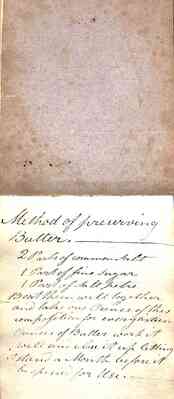 Method of preserving
Butter.
2 Parts of common Salt
1 Part of fine Sugar
1 Part of Salt Petre
Beat them well together
and take one Ounce of this
composition for every sixteen
Ounces of Butter work it
well and close it up letting
it stand a Month before it
is opened for Use